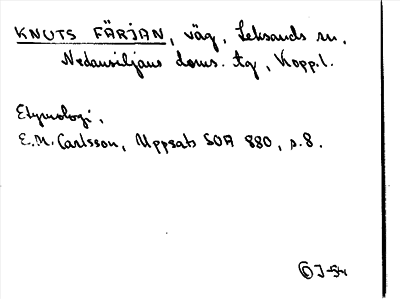 KNUTS FÄRJAN, väg, Leksands sn,
Nedansiljans doms. tg, Kopp.l.
Etymologi,
E.M. Carlsson, Uppsats SOA 880, s.8.